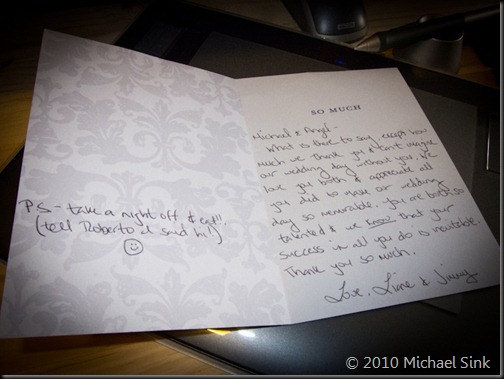 PS - take a right off & eat!!
(tell Roberto I said hi!)
SO MUCH
Michael & Angel -
What is there to say, except how
much we thank you & can't imagine
our wedding day without you. We
love you both & appreciate all
you did to make our wedding
day so memorable. You are both so
talented & we know that your
success in all you do is inevitable.
Thank you so much.
Love, & Jimmy
© 2010 Michael Sink